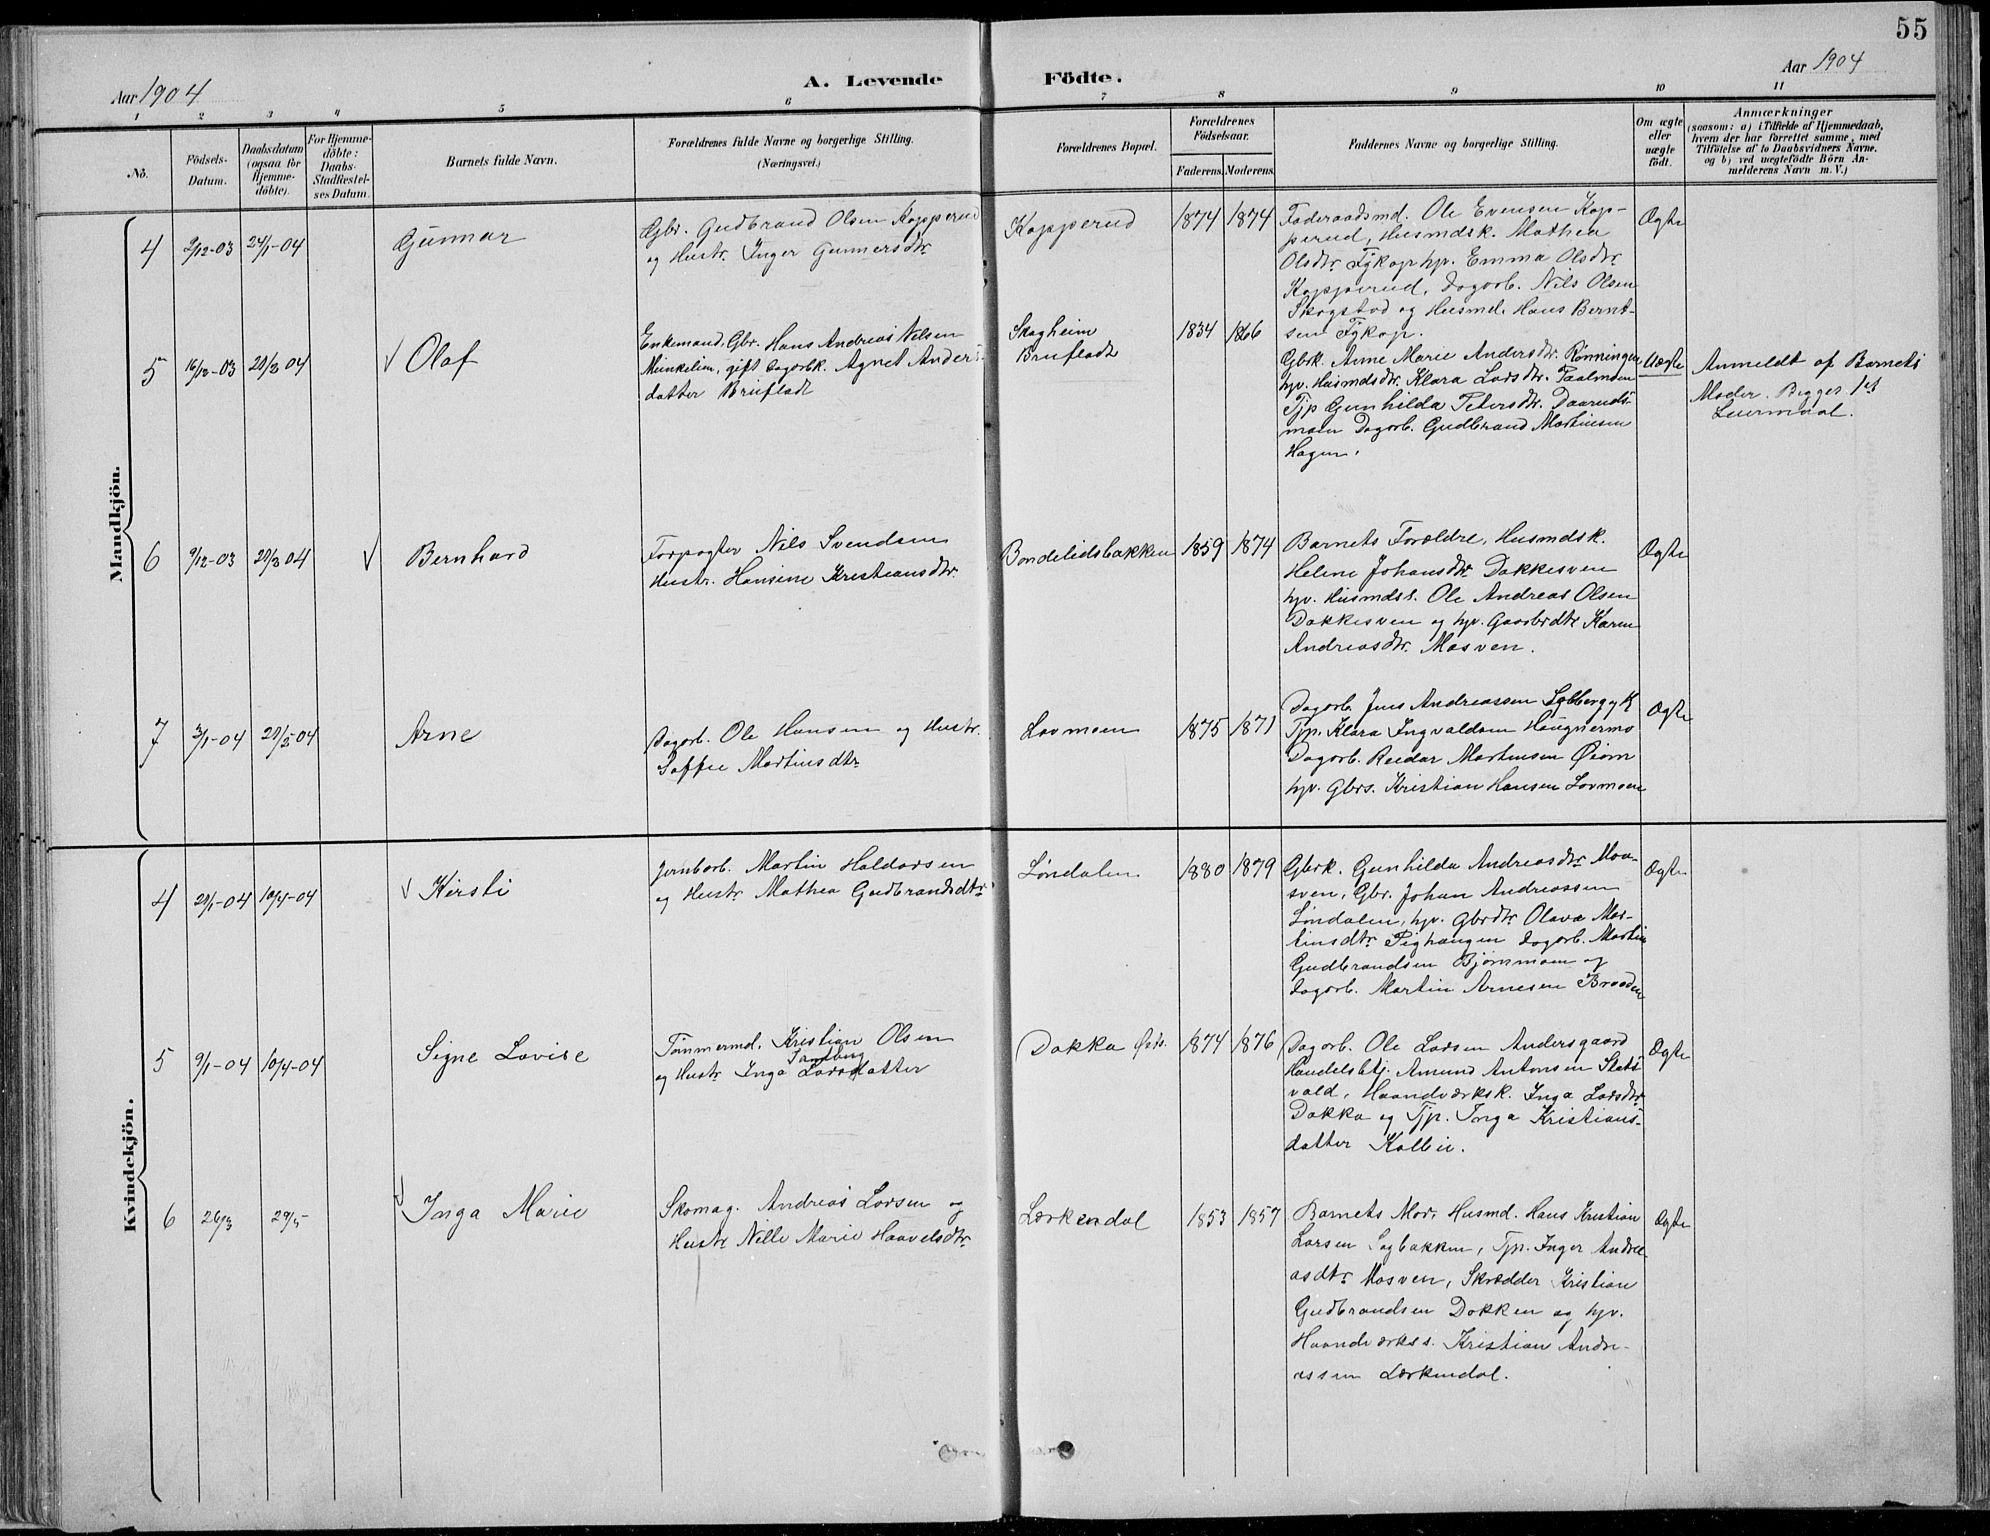 55
Aar 1904
A. Levende
Födte.
Aar 1904
1 2 3 4 5 6 7 8 9 10 11
No.
Födsels-
Datum.
Daabsdatum
(ogsaa for
Hjemme-
döbte).
For Hjemme-
döbte:
Daabs-
Stadfæstel-
ses Datum.
Barnets fulde Navn.
Forældrenes fulde Navne og borgerlige Stilling.
(Næringsvei.)
Forældrenes Bopæl.
Forældrenes
Födselsaar.
Faderens. Moderens.
Faddernes Navne og borgerlige Stilling.
Om ægte
eller
uægte
födt.
Anmærkninger
(saasom: a) i Tilfælde af Hjemmedaab,
hvem der har forrettet samme, med
Tilföielse af to Daabsvidners Navne,
og b) ved uægtefödte Börn An-
melderens Navn m. V.)
Mandkjön.
4
2/12-03
24/1-04
Gunnar
Gbr. Gudbrand Olsen Kopperud
og Hustr. Inger Gunnersdtr.
Kopperud
1874
1874
Föderaadsmd. Ole Evensen Kop-
perud, Husmdsk. Mathea
Olsdtr. Fykop hp. Emma Olsdtr.
Kopperud, Dagarb. Nils Olsen
Skogstad og Husmd. Hans Bernt-
sen Fykop.
Ægte
5
16/12-03
20/3 04
Olaf
Enkemand, Gbr. Hans Andreas Nilsen
Munkelien, gift Dagarbk. Agnet Anders-
datter Bruflat
Skogheim
Brufladt
1834
1866
Gbrk. Anne Marie Andersdtr. Rønningen
hp. Husmdsdtr. Klara Larsdtr. Paalmoen
Tjp Gunhilda Petersdtr. Daaruds-
moen Dagarb. Gudbrand Martinsen
Hagen.
Uægte
Anmeldt af Barnets
Moder. Begges 1st
Leiermaal.
6
9/12-03
20/3 04
Bernhard
Forpagter Nils Svendsen
Hustr. Hansine Kristiansdtr.
Bondelidsbakken
1859
1874
Barnets Forældre, Husmdsk.
Helene Johansdtr. Dokkesven
hp. Husmdss. Ole Andreas Olsen
Dokkesven og hp. Gaardbrdtr Karen
Andreasdtr. Mosven.
Ægte
7
3/1-04
20/3-04
Arne
Dagarb. Ole Hansen og Hustr.
Soffie Martinsdtr.
Lovmoen
1875
1871
Dagarb. Jens Andreassen
Tjp. Klara Ingvaldsen Haugnermo
Dagarb. Reidar Martinsen Øiom
hp. Gbrs. Kristian Hansen Lovmoen
Ægte
Kvindekjön.
4
20/1-04
10/4-04
Kirsti
Jernbarb. Martin Haldorsen
og Hustr. Mathea Gudbrandsdtr.
Løndalen
1880
1879
Gbrk. Gunhilda Andreasdtr. Mo-
sven, Gbr. Johan Andreassen
Løndalen, hp. Gbrdtr. Olava Mar-
tinsdtr. Pighaugen Dagarb. Martin
Gudbrandsen Bjørnmoen og
Dagarb. Martin Arnesen Braaden
Ægte
5
9/1-04
10/4-04
Signe Lovise
Tømmermd. Kristian Olsen
Sandberg
og Hustr. Inga Larsdatter
Dokka
1874
1876
Dagarb. Ole Larsen Andersgaard
Handelsbtj. Amund Antonsen Slets-
vold, Haandværksk. Inga Larsdtr.
Dokka og Tjp. Inga Kristians-
datter Kolbu.
Ægte
6
26/3
29/5
Inga Marie
Skomag. Andreas Larsen og
Hustr Nille Marie Haavelsdtr.
Lærkendal
1853
1857
Barnets Mor, Husmd. Hans Kristian
Larsen Sagbakken, Tjp. Inger Andre-
asdtr. Mosven, Skrædder Kristian
Gudbrandsen Dokken og hp.
Haandværkss. Kristian Andre-
assen Lærkendal.
Ægte